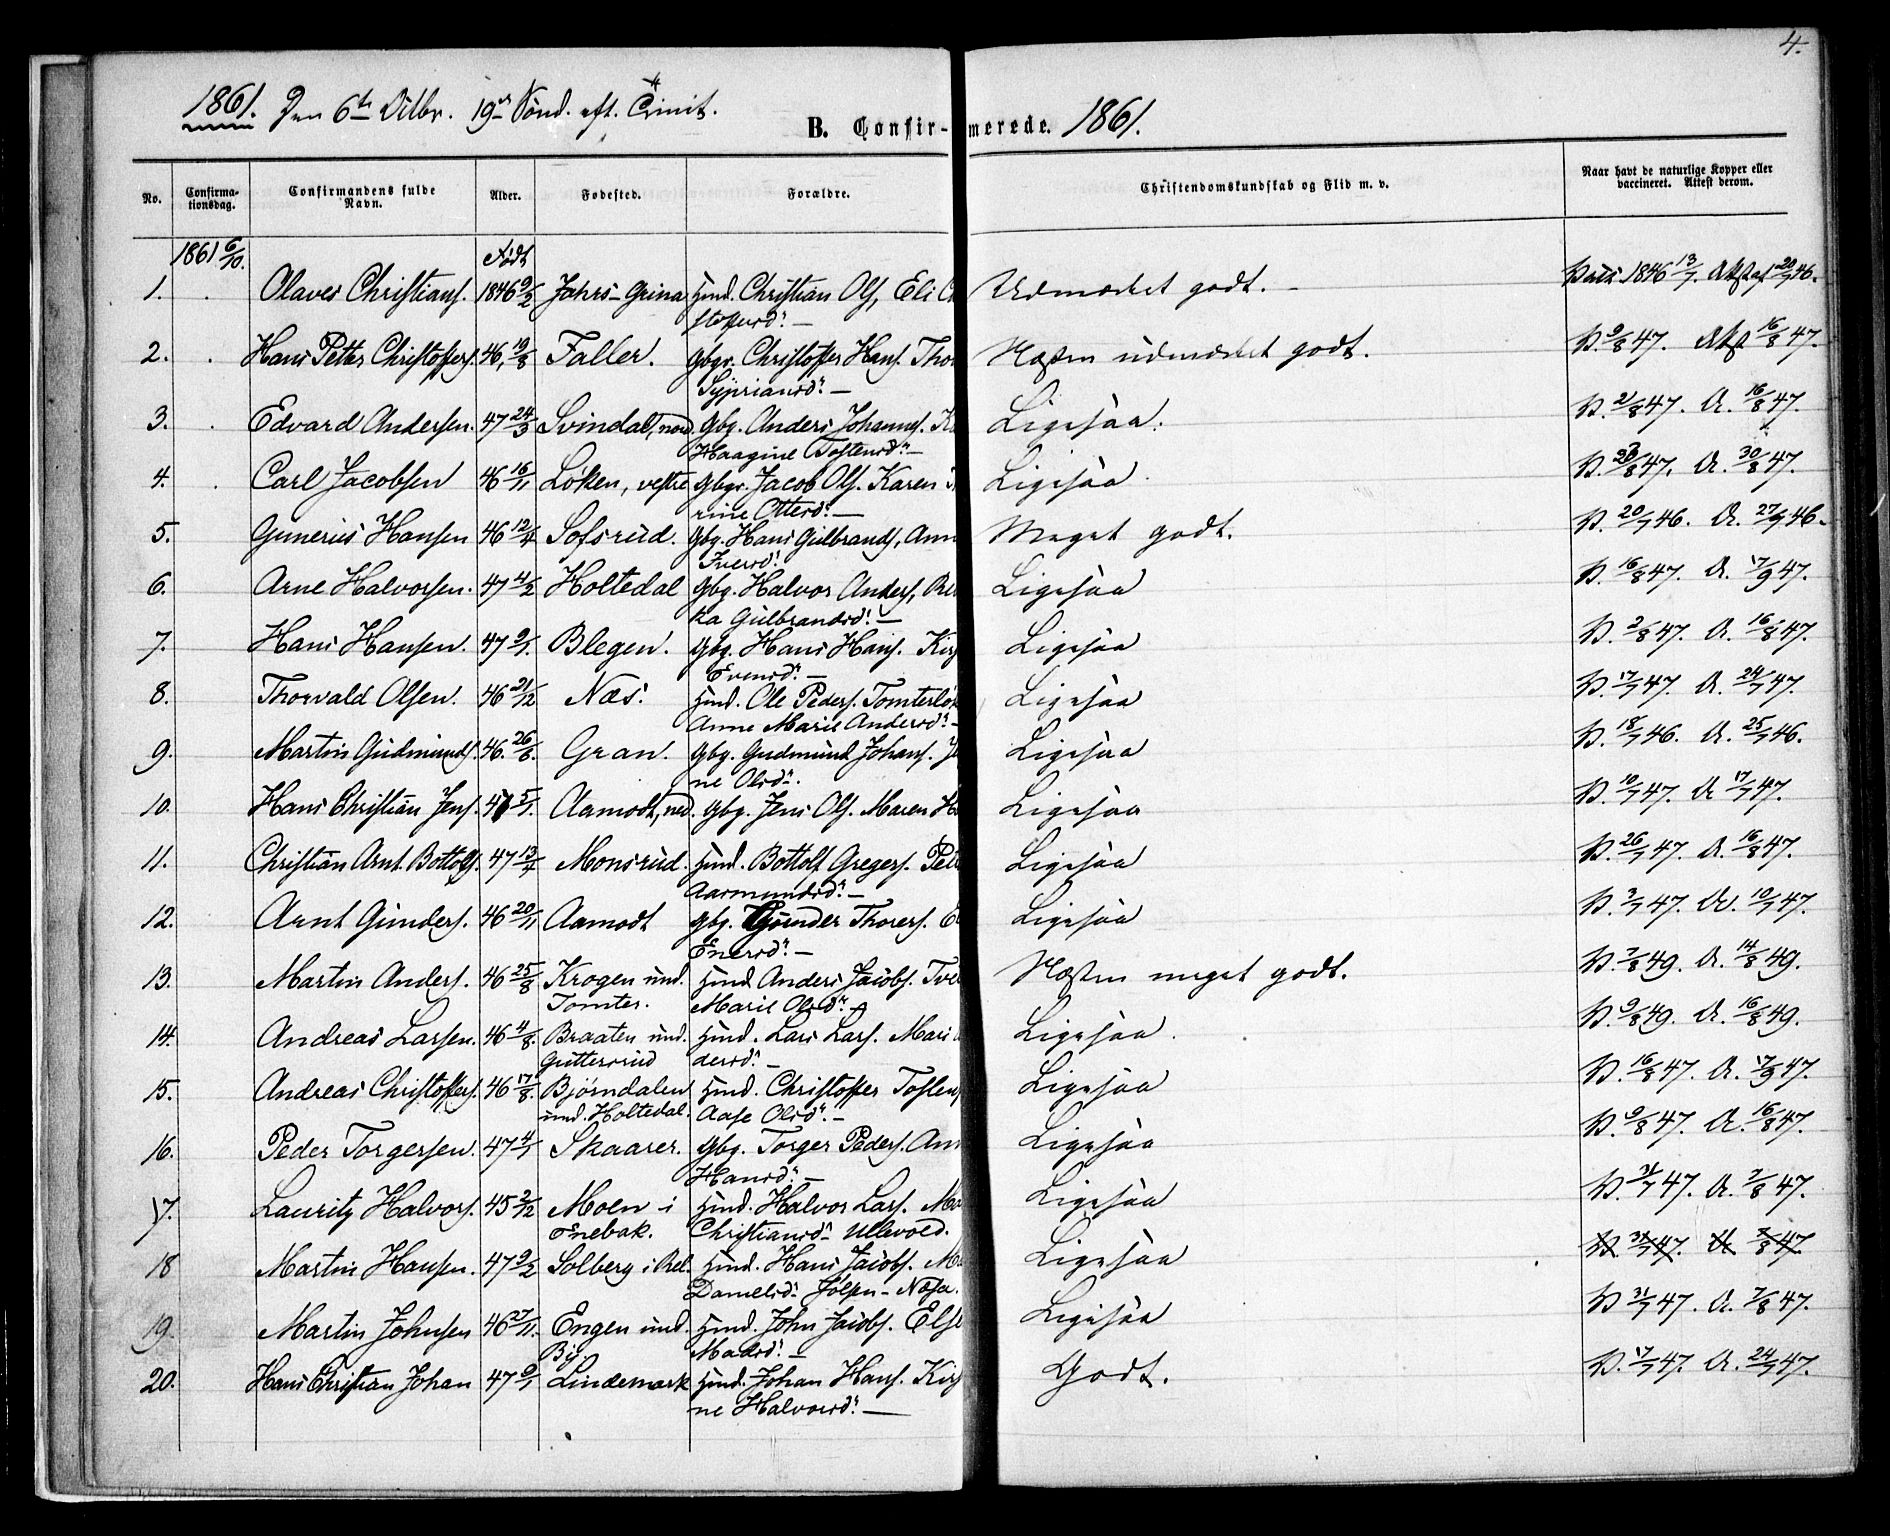 4.
1861. Den 6te Octbr. 19de Sønd. eft. Trinit.
B. Confirmerede. 1861.
No. Confirmationsdag. Confirmandens fulde Navn. Alder. Fødested. Forældre. Christendomskundskab og Flid m. v. Naar havt de naturlige Kopper eller vaccineret. Attest derom.
1861 6/10. Født
1. Olaves Christians. 1846 9/2 Grina Hmd. Christian Ols, Eli Udmærket godt. 1846 13/7 20/7 46.
2. Hans Petter Christoffers. 46, 19/8 Faller. Gbgr. Christoffer Hans. Thor Næsten udmærket godt. V. 9/8 47. Atst 16/8 47.
Sypriansd. —
3. Edvard Andersen. 47 24/3 Svindal, nord. Gbg. Anders Johanns. Ligesaa. V. 2/8 47. A. 16/8 47.
Haagine Tostensd. —
4. Carl Jacobsen 46 16/11 Løken, vestre Gbgr. Jacob Ols. Karen Ligesaa V. 47. A. 30/8 47.
rine Ottersd. —
5. Gunerius Hansen 46 12/4 Sofsrud. Gbg. Hans Gulbrands, Ann Meget godt. V. 20/7 46. A. 46.
Iversd.
6. Arne Halvorsen. 47 4/2 Holtedal Gbg. Halvor Anders, Ligesaa V. 16/8 47. A. 17/9 47.
ka Gulbrandsd. —
7. Hans Hansen. 47 9/1. Blegen. Gbg. Hans Hans. Ligesaa V. 2/8 47. A. 16/8 47.
Evensd. —
8. Thorvald Olsen. 46 21/12 Næs. Hmd. Ole Peders. Ligesaa V. 17/7 47. A. 24/7 47.
Anne Marie Andersd. —
9. Martin Gudmunds. 46. 26/6. Gran. Gbg. Gudmund Johans. Ligesaa V. 18/7 46. A. 25/7 46.
ne Olsd.
10. Hans Christian Jens. 47 5/1. Aamodt, ned. Gbg. Jens Ols. Maren Ligesaa V. 10/7 47. A 17/7 47.
11. Christian Arnt Bottolfs. 47 13/4 Monsrud. Hmd. Bottolf Gregers. Ligesaa V. 26/7 47. A. 16/8 47.
Aasmundsd. —
12. Arnt Gunders. 46 20/11 Aamodt Gbg. Gunder Thorers. Ligesaa V. 3/7 47. A. 10/7 47.
Enersd. —
13. Martin Anders. 46 25/8 Krogen und. Hmd Anders Jacobs. Næsten meget godt. V. 7/8 49. A. 14/8 49.
Tomter. Marie Olsd.
14. Andreas Larsen. 46 4/8. Braaten und. Hmd. Lars Lars. Mari Ligesaa. V. 9/8 49. A. 16/8 49.
Guttersrud dersd. —
15. Andreas Christoffers. 46 17/8. Bjørndalen Hmd. Christoffer Tosten, Ligesaa V. 16/8 47. A. 17/9 47.
und. Holtedal. Aase Olsd. —
16. Peder Torgersen. 47 4/1 Skaarer. Gbg. Torger Peders. Ann Ligesaa V. 9/8 47. A. 16/8 47.
Hansd. —
17. Lauritz Halvors. 45 2/12 Moen i Hmd. Halvor Lars. Ligesaa V. 31/7 47. A. 7/8 47.
Enebak. Christiansd. Ullevold.
18 Martin Hansen. 47 9/2 Solberg i Hmd. Hans Jacobs. Ligesaa V. 31/7 47. A. 7/8 47.
Danielsd.
19. Martin Johnsen 46 27/11. Engen und. Hmd. John Jacobs. Else Ligesaa V 31/7 47. A. 7/8 47.
By. Madsd. —
20. Hans Christian Johan 47 9/1 Lindemark Hmd. Johan Hans. Godt. V. 17/7 47. A. 24/7 47.
ne Halvorsd. —